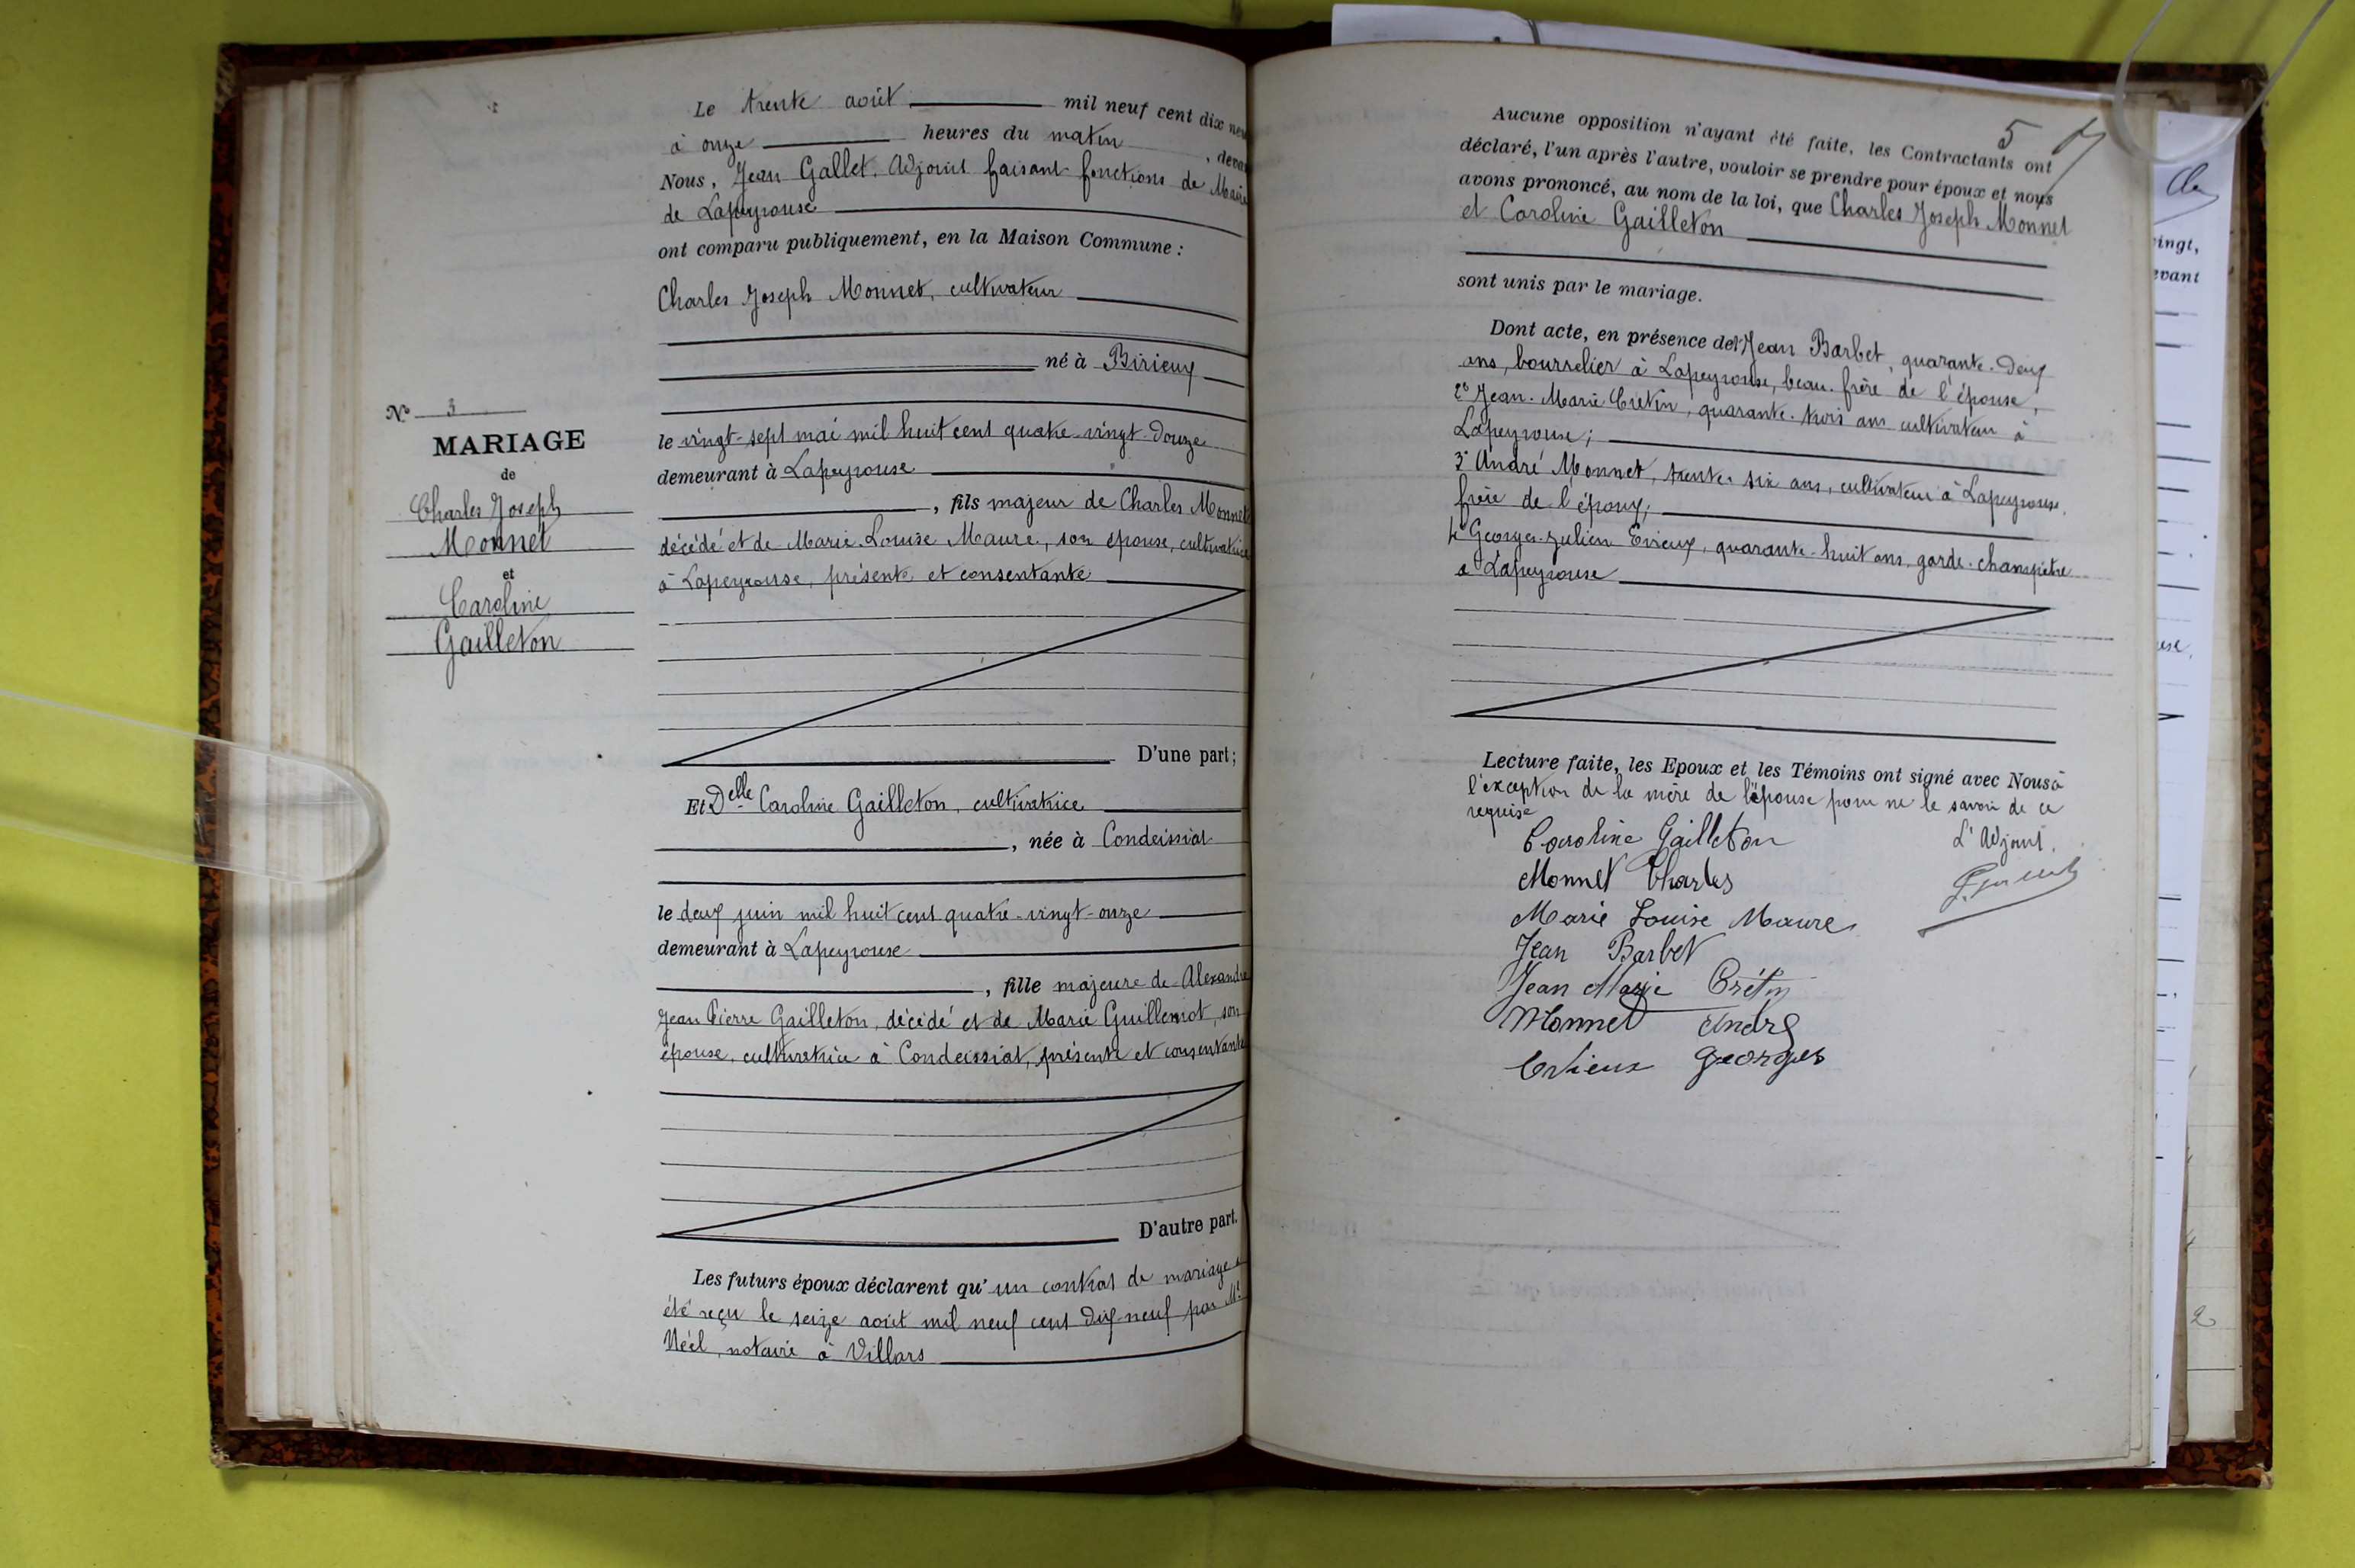 Le trente août mil neuf cent dix neu
à onze heures du matin, devan
Nous, Jean Gallet, Adjoint faisant fonctions de Maire
de Lapeyrouse
ont comparu publiquement, en la Maison Commune :
Charles Joseph Monnet, cultivateur
né à Birieux
le vingt-sept mai mil huit cent quatre-vingt-douze
demeurant à Lapeyrouse
, fils majeur de Charles Monnet
décédé et de Marie-Louise Maure, son épouse, cultivatrice
à Lapeyrouse, présente et consentante
D'une part ;
Et Delle Caroline Gailleton, cultivatrice
, née à Condeissiat
le deux juin mil huit cent quatre-vingt-onze
demeurant à Lapeyrouse
, fille majeure de Alexandre
Jean Pierre Gailleton, décédé et de Marie Guillemot, son
épouse, cultivatrice à Condeissiat, présente et consentante
D'autre part.
Les futurs époux déclarent qu'un contrat de mariage a
été reçu le seize août mil neuf cent dix-neuf par Me
Néel, notaire à Villars
No 3
MARIAGE
de
Charles Joseph
Monnet
et
Caroline
Gailleton
5
Aucune opposition n'ayant été faite, les Contractants ont
déclaré, l'un après l'autre, vouloir se prendre pour époux et nous
avons prononcé, au nom de la loi, que Charles Joseph Monnet
et Caroline Gailleton
sont unis par le mariage.
Dont acte, en présence de 1° Jean Barbet, quarante-deux
ans, bourrelier à Lapeyrouse, beau-frère de l'épouse,
2° Jean-Marie Cretin, quarante-trois ans cultivateur à
Lapeyrouse ;
3° André Monnet, trente-six ans, cultivateur à Lapeyrouse,
frère de l'époux ;
4° Georges-Julien Evieux, quarante-huit ans, garde-champêtre
à Lapeyrouse
Lecture faite, les Epoux et les Témoins ont signé avec Nous à
l'exception de la mère de l'épouse pour ne le savoir de ce
requise
Caroline Gailleton
L'Adjoint,
Monnet Charles
Marie Louise Maure
Jean Barbet
Jean Marie Crétin
Monnet André
Evieux Georges
ingt,
evant
2